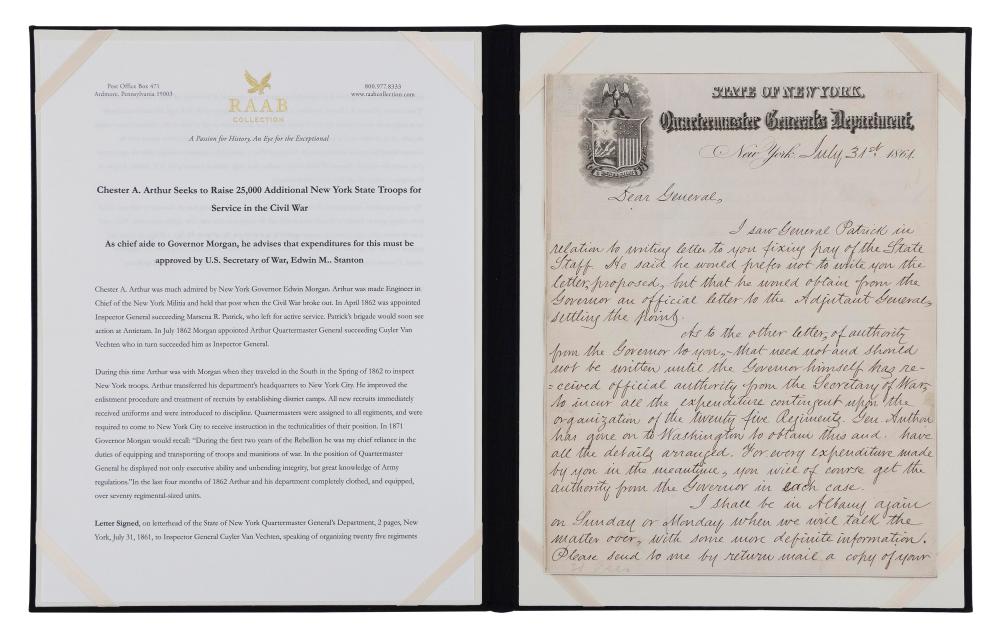 Post Office Box 471
Ardmore, Pennsylvania 19003
800.977.8333
www.raabcollection.com
RAAB
COLLECTION
A Passion for History, An Eye for the Exceptional
Chester A. Arthur Seeks to Raise 25,000 Additional New York State Troops for
Service in the Civil War
As chief aide to Governor Morgan, he advises that expenditures for this must be
approved by U.S. Secretary of War, Edwin M.. Stanton
Chester A. Arthur was much admired by New York Governor Edwin Morgan. Arthur was made Engineer in
Chief of the New York Militia and held that post when the Civil War broke out. In April 1862 was appointed
Inspector General succeeding Marsena R. Patrick, who left for active service. Patrick's brigade would soon see
action at Antietam. In July 1862 Morgan appointed Arthur Quartermaster General succeeding Cuyler Van
Vechten who in turn succeeded him as Inspector General.
During this time Arthur was with Morgan when they traveled in the South in the Spring of 1862 to inspect
New York troops. Arthur transferred his department's headquarters to New York City. He improved the
enlistment procedure and treatment of recruits by establishing district camps. All new recruits immediately
received uniforms and were introduced to discipline. Quartermasters were assigned to all regiments, and were
required to come to New York City to receive instruction in the technicalities of their position. In 1871
Governor Morgan would recall: "During the first two years of the Rebellion he was my chief reliance in the
duties of equipping and transporting of troops and munitions of war. In the position of Quartermaster
General he displayed not only executive ability and unbending integrity, but great knowledge of Army
regulations."In the last four months of 1862 Arthur and his department completely clothed, and equipped,
over seventy regimental-sized units.
Letter Signed, on letterhead of the State of New York Quartermaster General's Department, 2 pages, New
York, July 31, 1861, to Inspector General Cuyler Van Vechten, speaking of organizing twenty five regiments
STATE OF NEW YORK,
Quartermaster General's Department,
New York, July 31st 1861.
Dear General,
I saw General Patrick in
relation to writing letter to you fixing pay of the State
Staff. He said he would prefer not to write you the
letter, proposed, but that he would obtain from the
Governor an official letter to the Adjutant General,
settling the point.
As to the other letter, of authority
from the Governor to you,- that need not and should
not be written until the Governor himself has re-
=ceived official authority from the Secretary of War,
to incur all the expenditure contingent upon the
organization of the twenty five Regiments. Gen. Arthur
has gone on to Washington to obtain this and have
all the details arranged. For every expenditure made
by you in the meantime, you will of course get the
authority from the Governor in each case.
I shall be in Albany again
on Sunday or Monday when we will talk the
matter over, with some more definite information.
Please send to me by return mail a copy of your